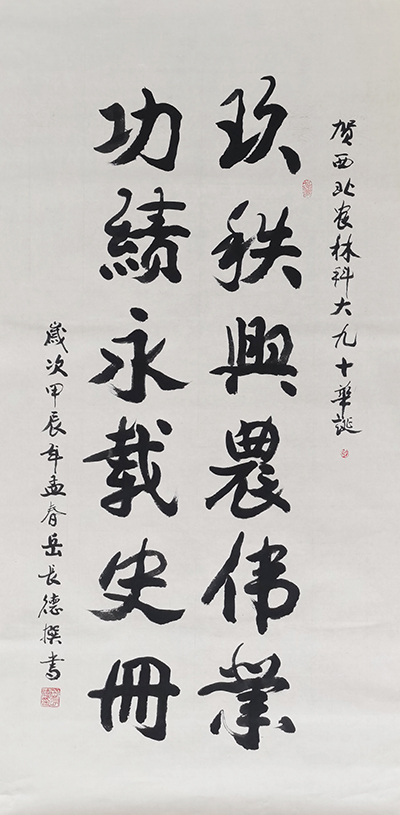 贺西北农林科大九十华诞
玖秩興農伟業
功績永载史冊
歲次甲辰年孟春岳長德撰書